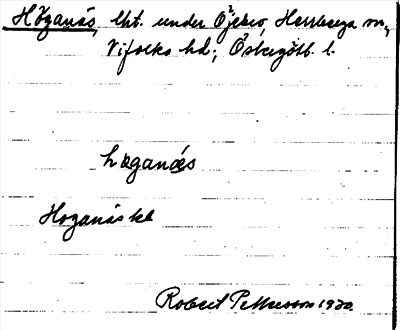 Höganäs, lht. under Öjebro, Herrberga sn,
Vifolka hd; Östergötl. l.
höganäs
Höganäs kl
Robert Pettersson 1930